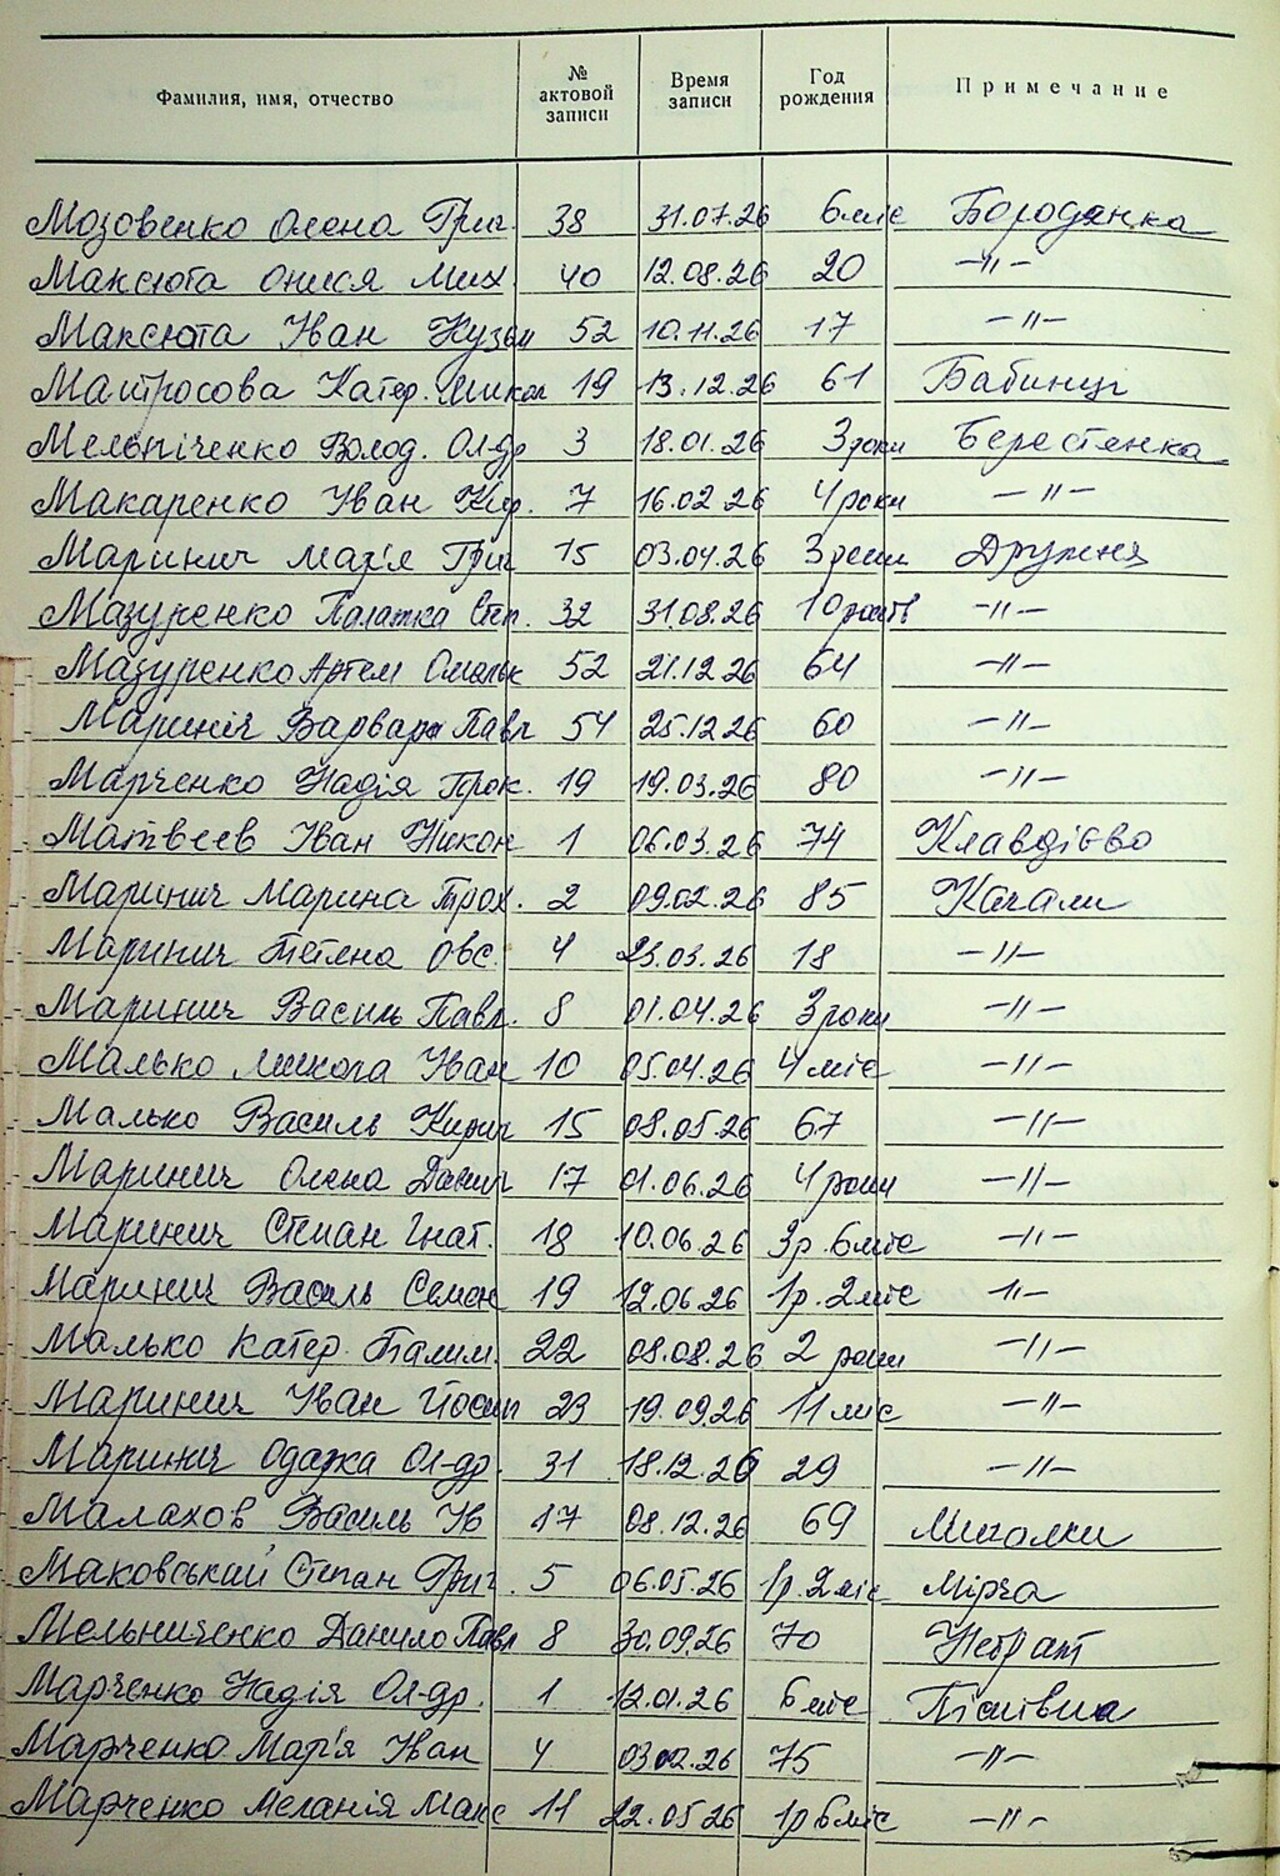 Фамилия, имя, отчество № актовой записи Время записи Год рождения Примечание
Мозовенко Олена Григ. 38 31.07.26 6 міс Бородянка
Максюта Онися Мих. 40 12.08.26 20 —"—
Максюта Іван Кузьм 52 10.11.26 17 —"—
Матросова Катер. Микол 19 13.12.26 61 Бабинці
Мельніченко Волод. Ол-др 3 18.01.26 3 роки Берестянка
Макаренко Іван 7 16.02.26 4 роки —"—
Маринич Мар'я Григ 15 03.04.26 3 роки Дружня
Мазуренко Палажка Степ. 32 31.08.26 10 років —"—
Мазуренко Артем Омельк 52 21.12.26 64 —"—
Мариніч Варвара Павл 54 25.12.26 60 —"—
Марченко Надія Прок. 19 19.03.26 80 —"—
Матвеев Іван Никон 1 06.03.26 74 Клавдієво
Маринич Марина Трох. 2 09.02.26 85 Качали
Маринич Тетяна Овс. 4 23.03.26 18 —"—
Маринич Василь Павл. 8 01.04.26 3 роки —"—
Малько Микола Іван 10 05.04.26 4 міс —"—
Малько Василь Кирил 15 08.05.26 67 —"—
Маринич Олена Данил 17 01.06.26 4 роки —"—
Маринич Степан Гнат. 18 10.06.26 3р. 6 міс —"—
Маринич Василь Семен 19 12.06.26 1р. 2 міс "—
Малько Катер. 22 08.08.26 2 роки —"—
Маринич Іван Йосип 23 19.09.26 11 міс —"—
Маринич Одарка Ол-др. 31 18.12.26 29 —"—
Малахов Василь Ів 17 08.12.26 69 Мигалки
Маковський Степан Григ. 5 06.05.26 1р. 2 міс Мірча
Мельниченко Данило Павл 8 30.09.26 70 Небрат
Марченко Надія Ол-др. 1 12.01.26 6 міс Пісківка
Марченко Мар'я Іван 4 03.02.26 75 —"—
Марченко Меланія Макс 11 22.05.26 1р 6 міс —"—